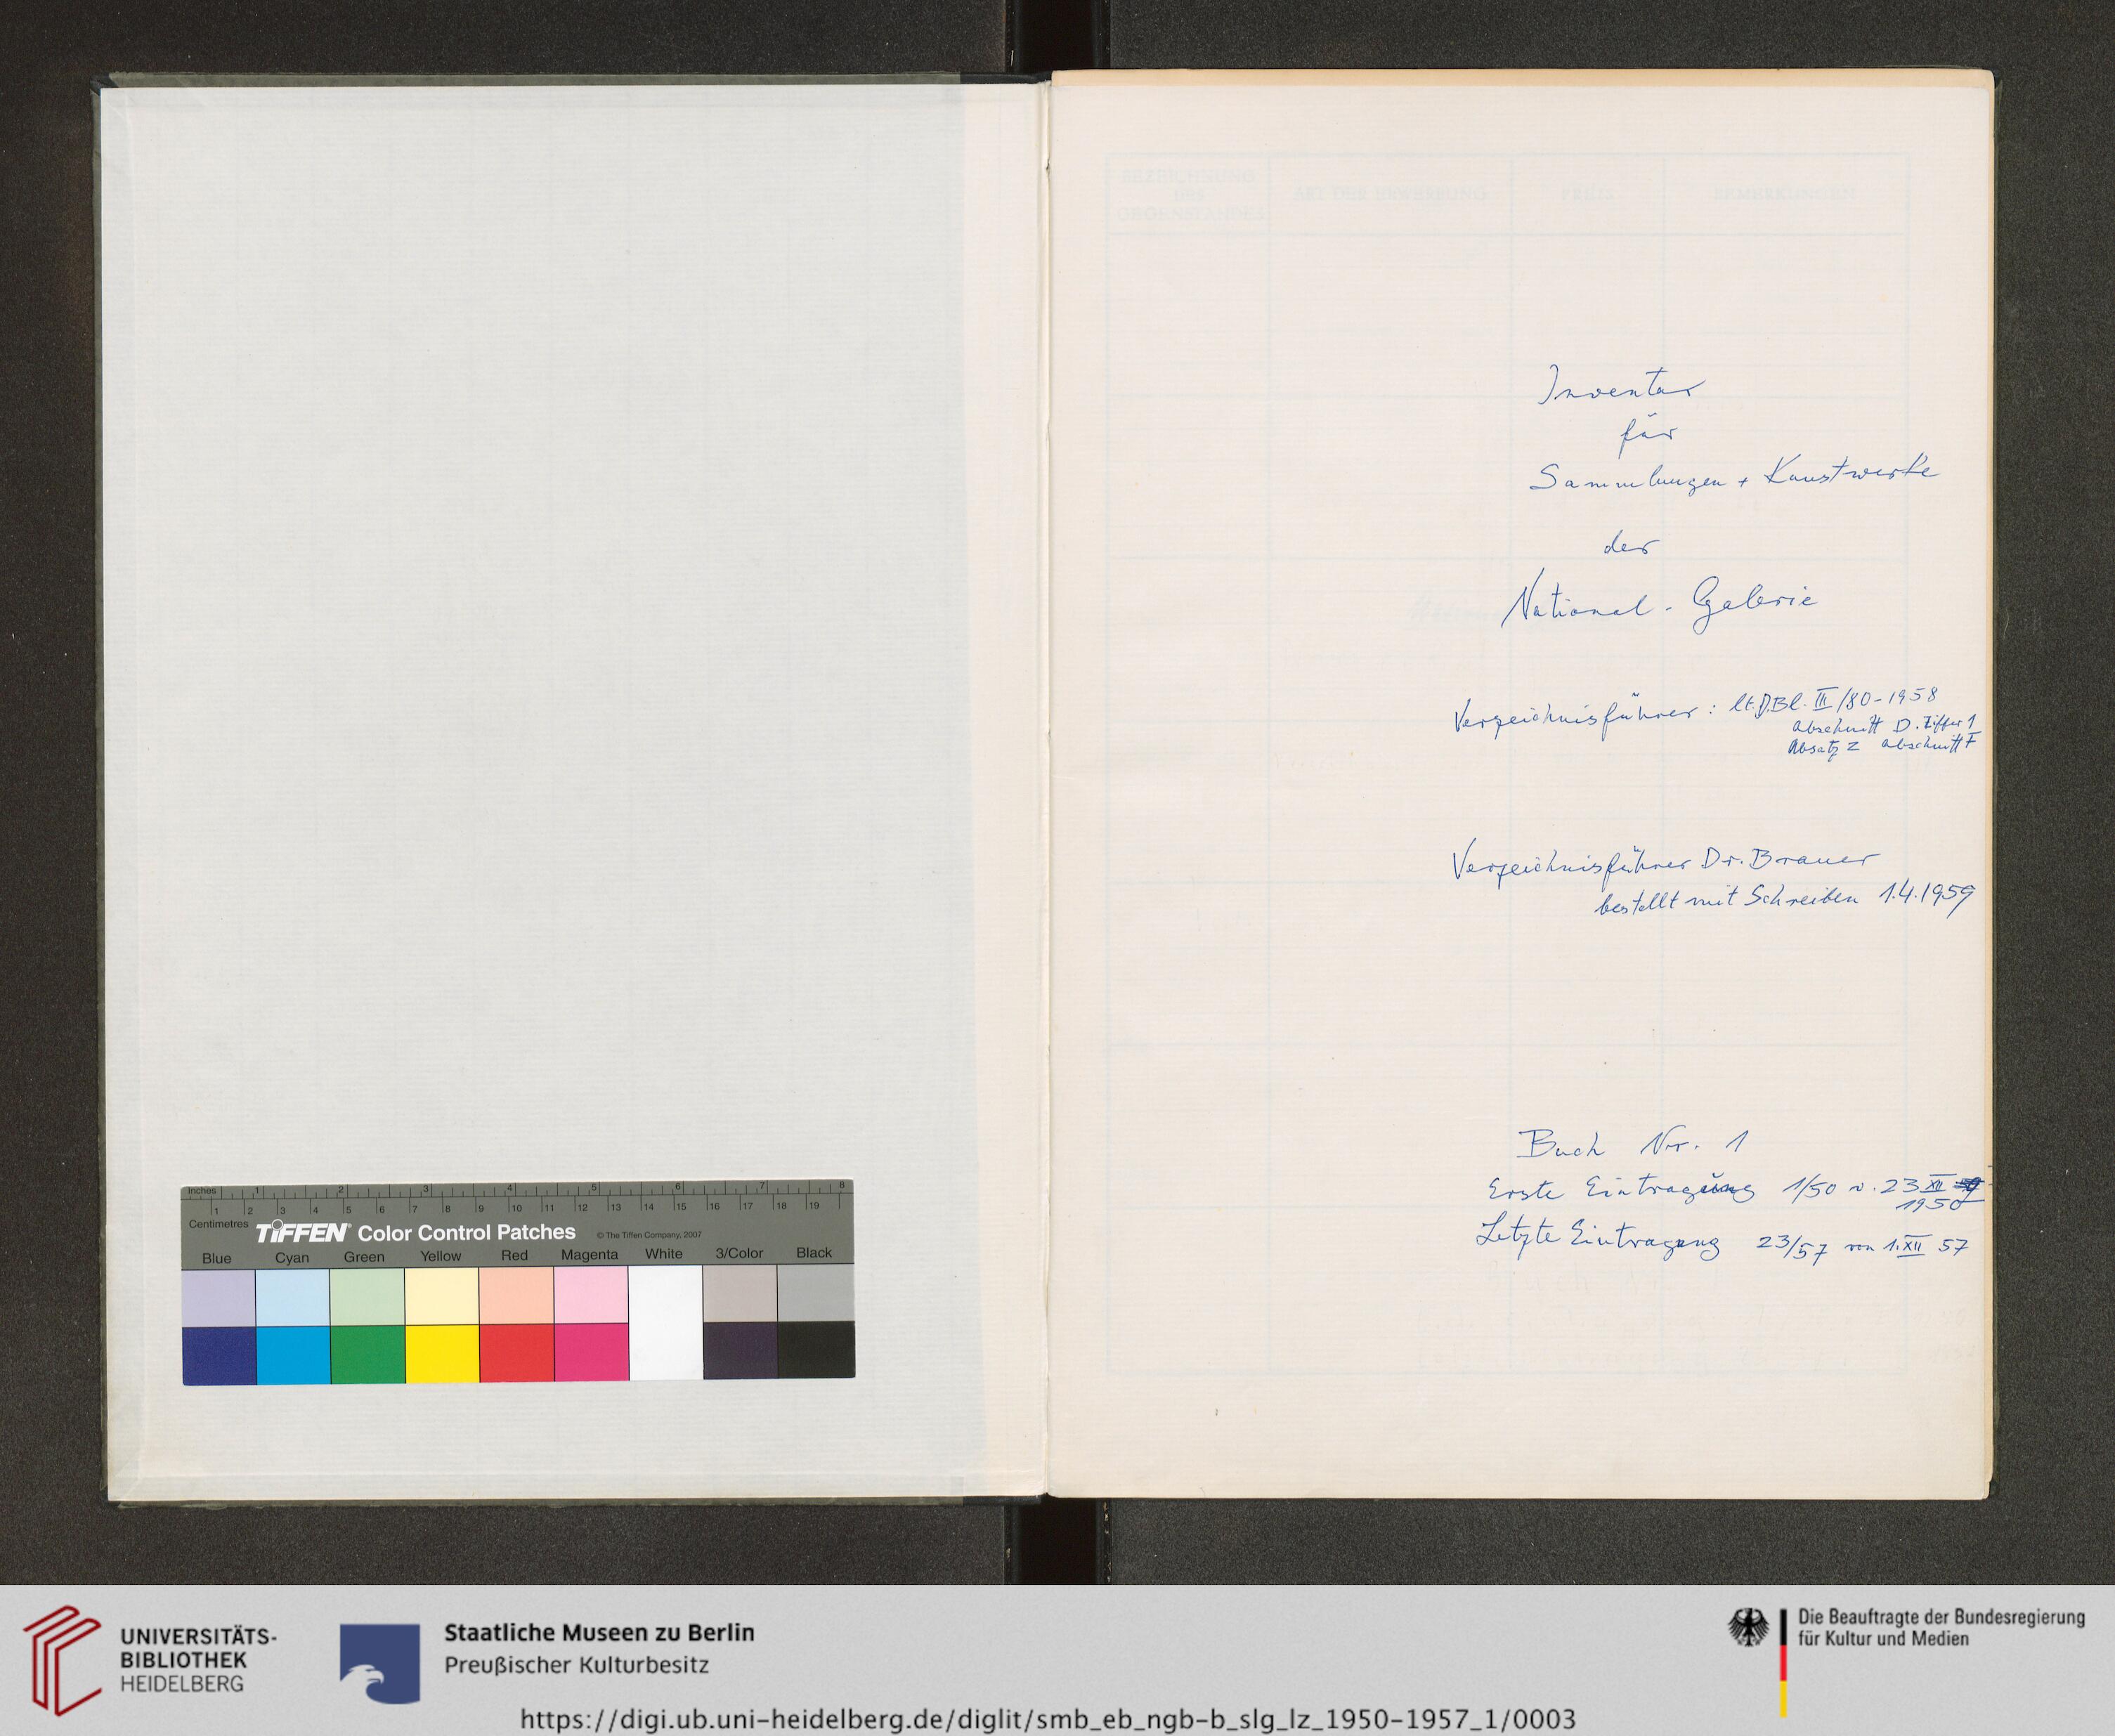 Inventar
für
Sammlungen + Kunstwerke
der
National-Galerie
Verzeichnisführer: lt. D.Bl. III/80-1958
Abschnitt D. Ziffer 1
Absatz 2 Abschnitt F
Verzeichnisführer Dr. Brauer
bestellt mit Schreiben 1.4.1959
Buch Nr. 1
Erste Eintragung 1/50 v. 23 XII
1950
Letzte Eintragung 23/57 von 1. XII 57
Inches 1 2 3 4 5 6 7 8
Centimetres 1 2 3 4 5 6 7 8 9 10 11 12 13 14 15 16 17 18 19
TIFFEN® Color Control Patches © The Tiffen Company, 2007
Blue Cyan Green Yellow Red Magenta White 3/Color Black
UNIVERSITÄTS-
BIBLIOTHEK
HEIDELBERG
Staatliche Museen zu Berlin
Preußischer Kulturbesitz
Die Beauftragte der Bundesregierung
für Kultur und Medien
https://digi.ub.uni-heidelberg.de/diglit/smb_eb_ngb-b_slg_lz_1950-1957_1/0003